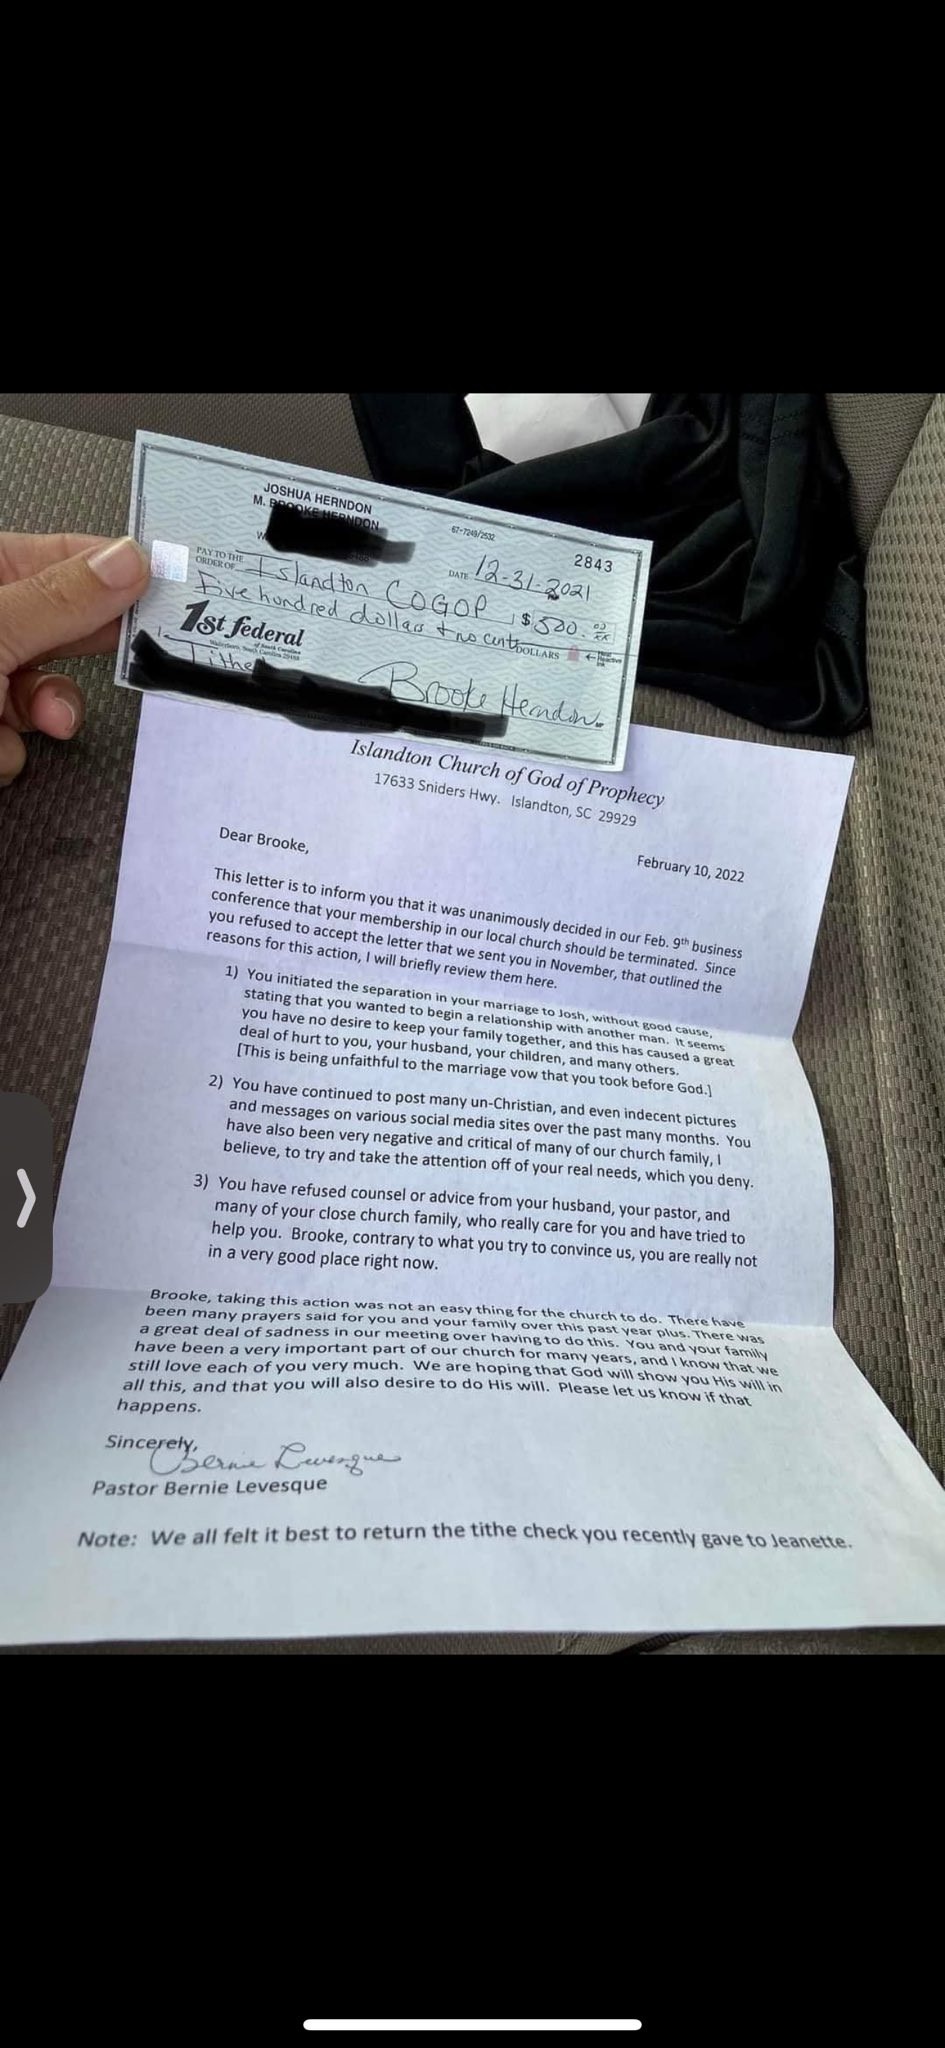 JOSHUA HERNDON
M. BROOKE HERNDON
67-7249/2532
2843
DATE 12-31-2021
PAY TO THE
ORDER OF Islandton COGOP $ 500.
Five hundred dollars + no cents DOLLARS
1st federal
of South Carolina
Tithe
Brooke Herndon
Islandton Church of God of Prophecy
17633 Sniders Hwy. Islandton, SC 29929
February 10, 2022
Dear Brooke,
This letter is to inform you that it was unanimously decided in our Feb. 9th business
conference that your membership in our local church should be terminated. Since
you refused to accept the letter that we sent you in November, that outlined the
reasons for this action, I will briefly review them here.
1) You initiated the separation in your marriage to Josh, without good cause,
stating that you wanted to begin a relationship with another man. It seems
you have no desire to keep your family together, and this has caused a great
deal of hurt to you, your husband, your children, and many others.
[This is being unfaithful to the marriage vow that you took before God.]
2) You have continued to post many un-Christian, and even indecent pictures
and messages on various social media sites over the past many months. You
have also been very negative and critical of many of our church family, I
believe, to try and take the attention off of your real needs, which you deny.
3) You have refused counsel or advice from your husband, your pastor, and
many of your close church family, who really care for you and have tried to
help you. Brooke, contrary to what you try to convince us, you are really not
in a very good place right now.
Brooke, taking this action was not an easy thing for the church to do. There have
been many prayers said for you and your family over this past year plus. There was
a great deal of sadness in our meeting over having to do this. You and your family
have been a very important part of our church for many years, and I know that we
still love each of you very much. We are hoping that God will show you His will in
all this, and that you will also desire to do His will. Please let us know if that
happens.
Sincerely,
Bernie Levesque
Pastor Bernie Levesque
Note: We all felt it best to return the tithe check you recently gave to Jeanette.